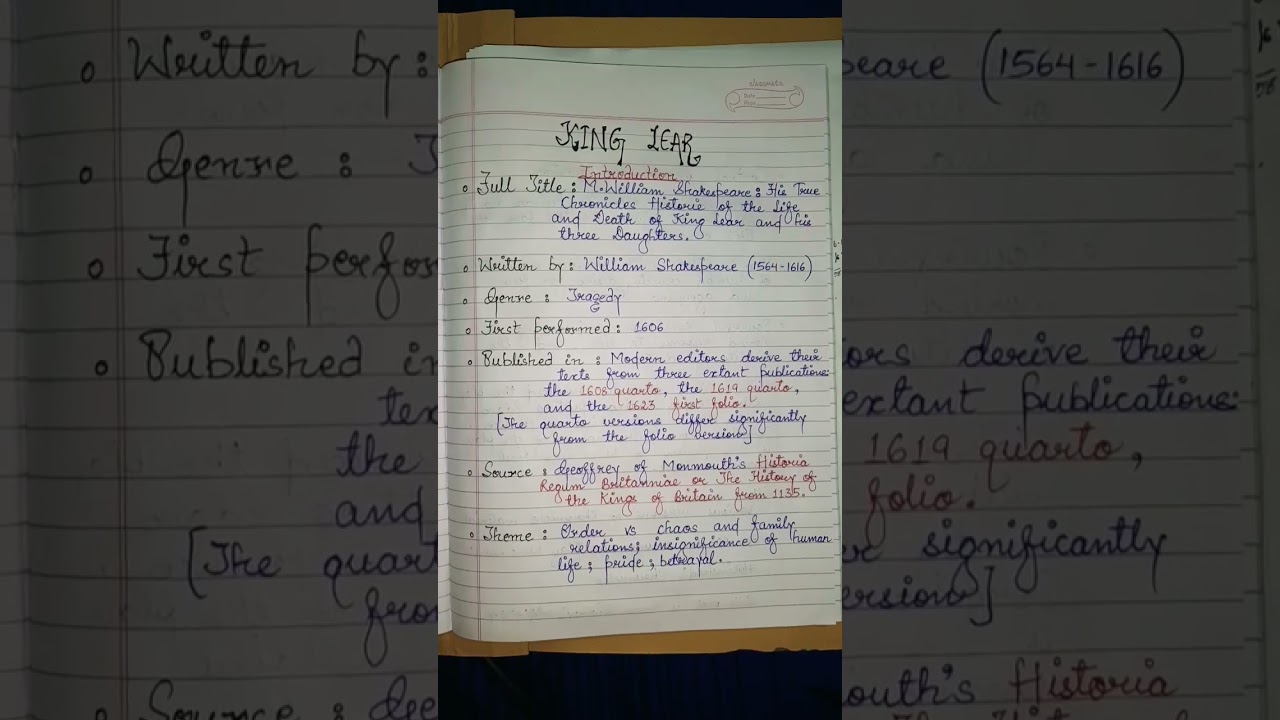 classmate
Date
Page
KING LEAR
Introduction
Full Title : M. William Shakespeare : His True
Chronicles Historie of the Life
and Death of King Lear and his
three Daughters.
Written by : William Shakespeare (1564-1616)
Genre : Tragedy
First performed : 1606
Published in : Modern editors derive their
texts from three extant publications:
the 1608 quarto, the 1619 quarto,
and the 1623 first folio.
[The quarto versions differ significantly
from the folio version]
Source : Geoffrey of Monmouth's Historia
Regum Britanniae or The History of
the Kings of Britain from 1135.
Theme : Order vs chaos and family
relations; insignificance of human
life ; pride ; betrayal.